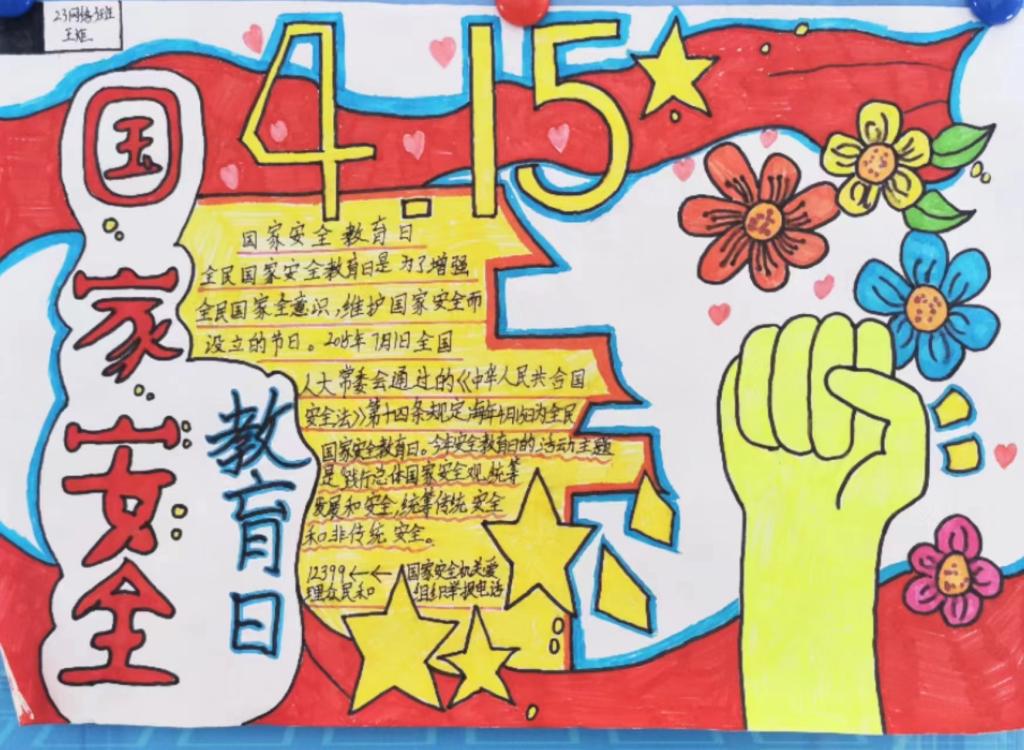 23网络班
王炬
4.15
国家安全
教育日
国家安全教育日
全民国家安全教育日是为了增强
全民国家全意识,维护国家安全而
设立的节日。2015年7月1日全国
人大常委会通过的《中华人民共合国
安全法》第十四条规定每年4月15日为全民
国家安全教育日。今年安全教育日的活动主题
是践行总体国家安全观,统筹
发展和安全,统筹传统安全
和非传统安全。
12399←←国家安全机关受
理公民和 组织举报电话